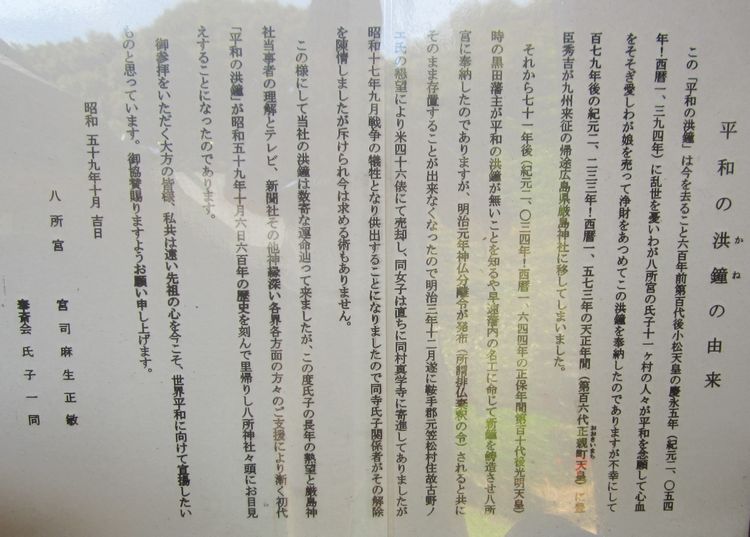 平和の洪鐘の由来
かね
この「平和の洪鐘」は今を去ること六百年前第百代後小松天皇の慶永五年（紀元二、〇五四
年！西暦一、三九四年）に乱世を憂いわが八所宮の氏子十一ヶ村の人々が平和を念願して心血
をそそぎ愛しわが娘を売って浄財をあつめてこの洪鐘を奉納したのでありますが不幸にして
百七九年後の紀元二、二三三年！西暦一、五七三年の天正年間（第百六代正親町天皇）に豊
おおぎいまち
臣秀吉が九州来征の帰途広島県厳島神社に移してしまいました。
それから七十一年後（紀元二、〇三四年！西暦一、六四四年の正保年間第百十代後光明天皇）
時の黒田藩主が平和の洪鐘が無いことを知るや早速藩内の名工に命じて新鐘を鋳造させ八所
宮に奉納したのでありますが、明治元年神仏分離令が発布（所謂排仏棄釈の令）されると共に
そのまま存置することが出来なくなったので明治三年十二月遂に鞍手郡元笠松村住故古野ノ
エ氏の懇望により米四十六俵にて売却し、同女子は直ちに同村真学寺に寄進してありましたが
昭和十七年九月戦争の犠牲となり供出することになりましたので同寺氏子関係者がその解除
を陳情しましたが斥けられ今は求める術もありません。
この様にして当社の洪鐘は数寄な運命辿って来ましたが、この度氏子の長年の熱望と厳島神
社当事者の理解とテレビ、新聞社その他神縁深い各界各方面の方々のご支援により漸く初代
「平和の洪鐘」が昭和五十九年十月六日六百年の歴史を刻んで里帰りし八所神社々頭にお目見
えすることになったのであります。
御参拝をいただく大方の皆様、私共は遠い先祖の心を今こそ、世界平和に向けて宣揚したい
ものと思っています。御協賛賜りますようお願い申し上げます。
昭和 五十九年十月 吉日
八所宮 宮司麻生正敏
奉斎会氏子一同